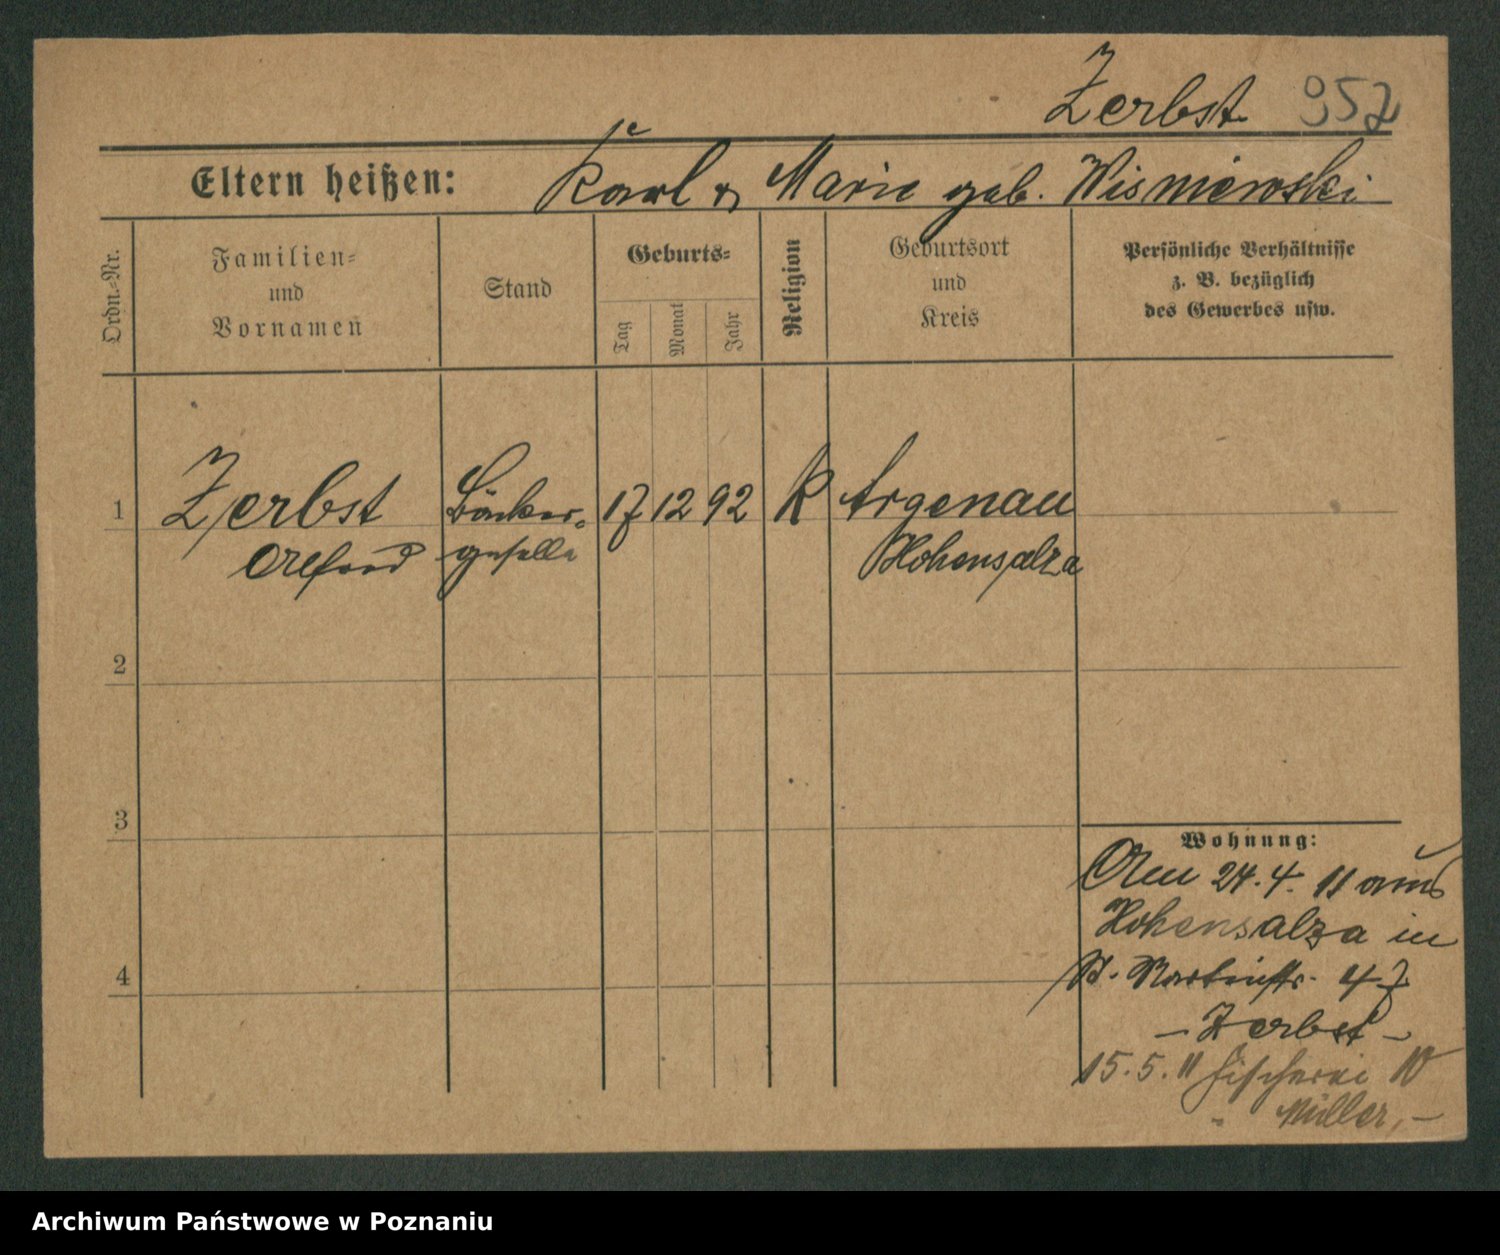 Zerbst 957
Eltern heißen: Karl & Marie geb. Wisniewski
Ordn.-Nr.
Familien=
und
Vornamen
Stand
Geburts=
Tag
Monat
Jahr
Religion
Geburtsort
und
Kreis
Persönliche Verhältnisse
z. B. bezüglich
des Gewerbes usw.
1 Zerbst Bäcker= 17 12 92 K Argenau
Alfred geselle Hohensalza
2
3
4
Wohnung:
Am 24.4.11 aus
Hohensalza in
St. Martinstr. 47
- Zerbst -
15.5.11 Fischerei 10
Müller, -
Archiwum Państwowe w Poznaniu